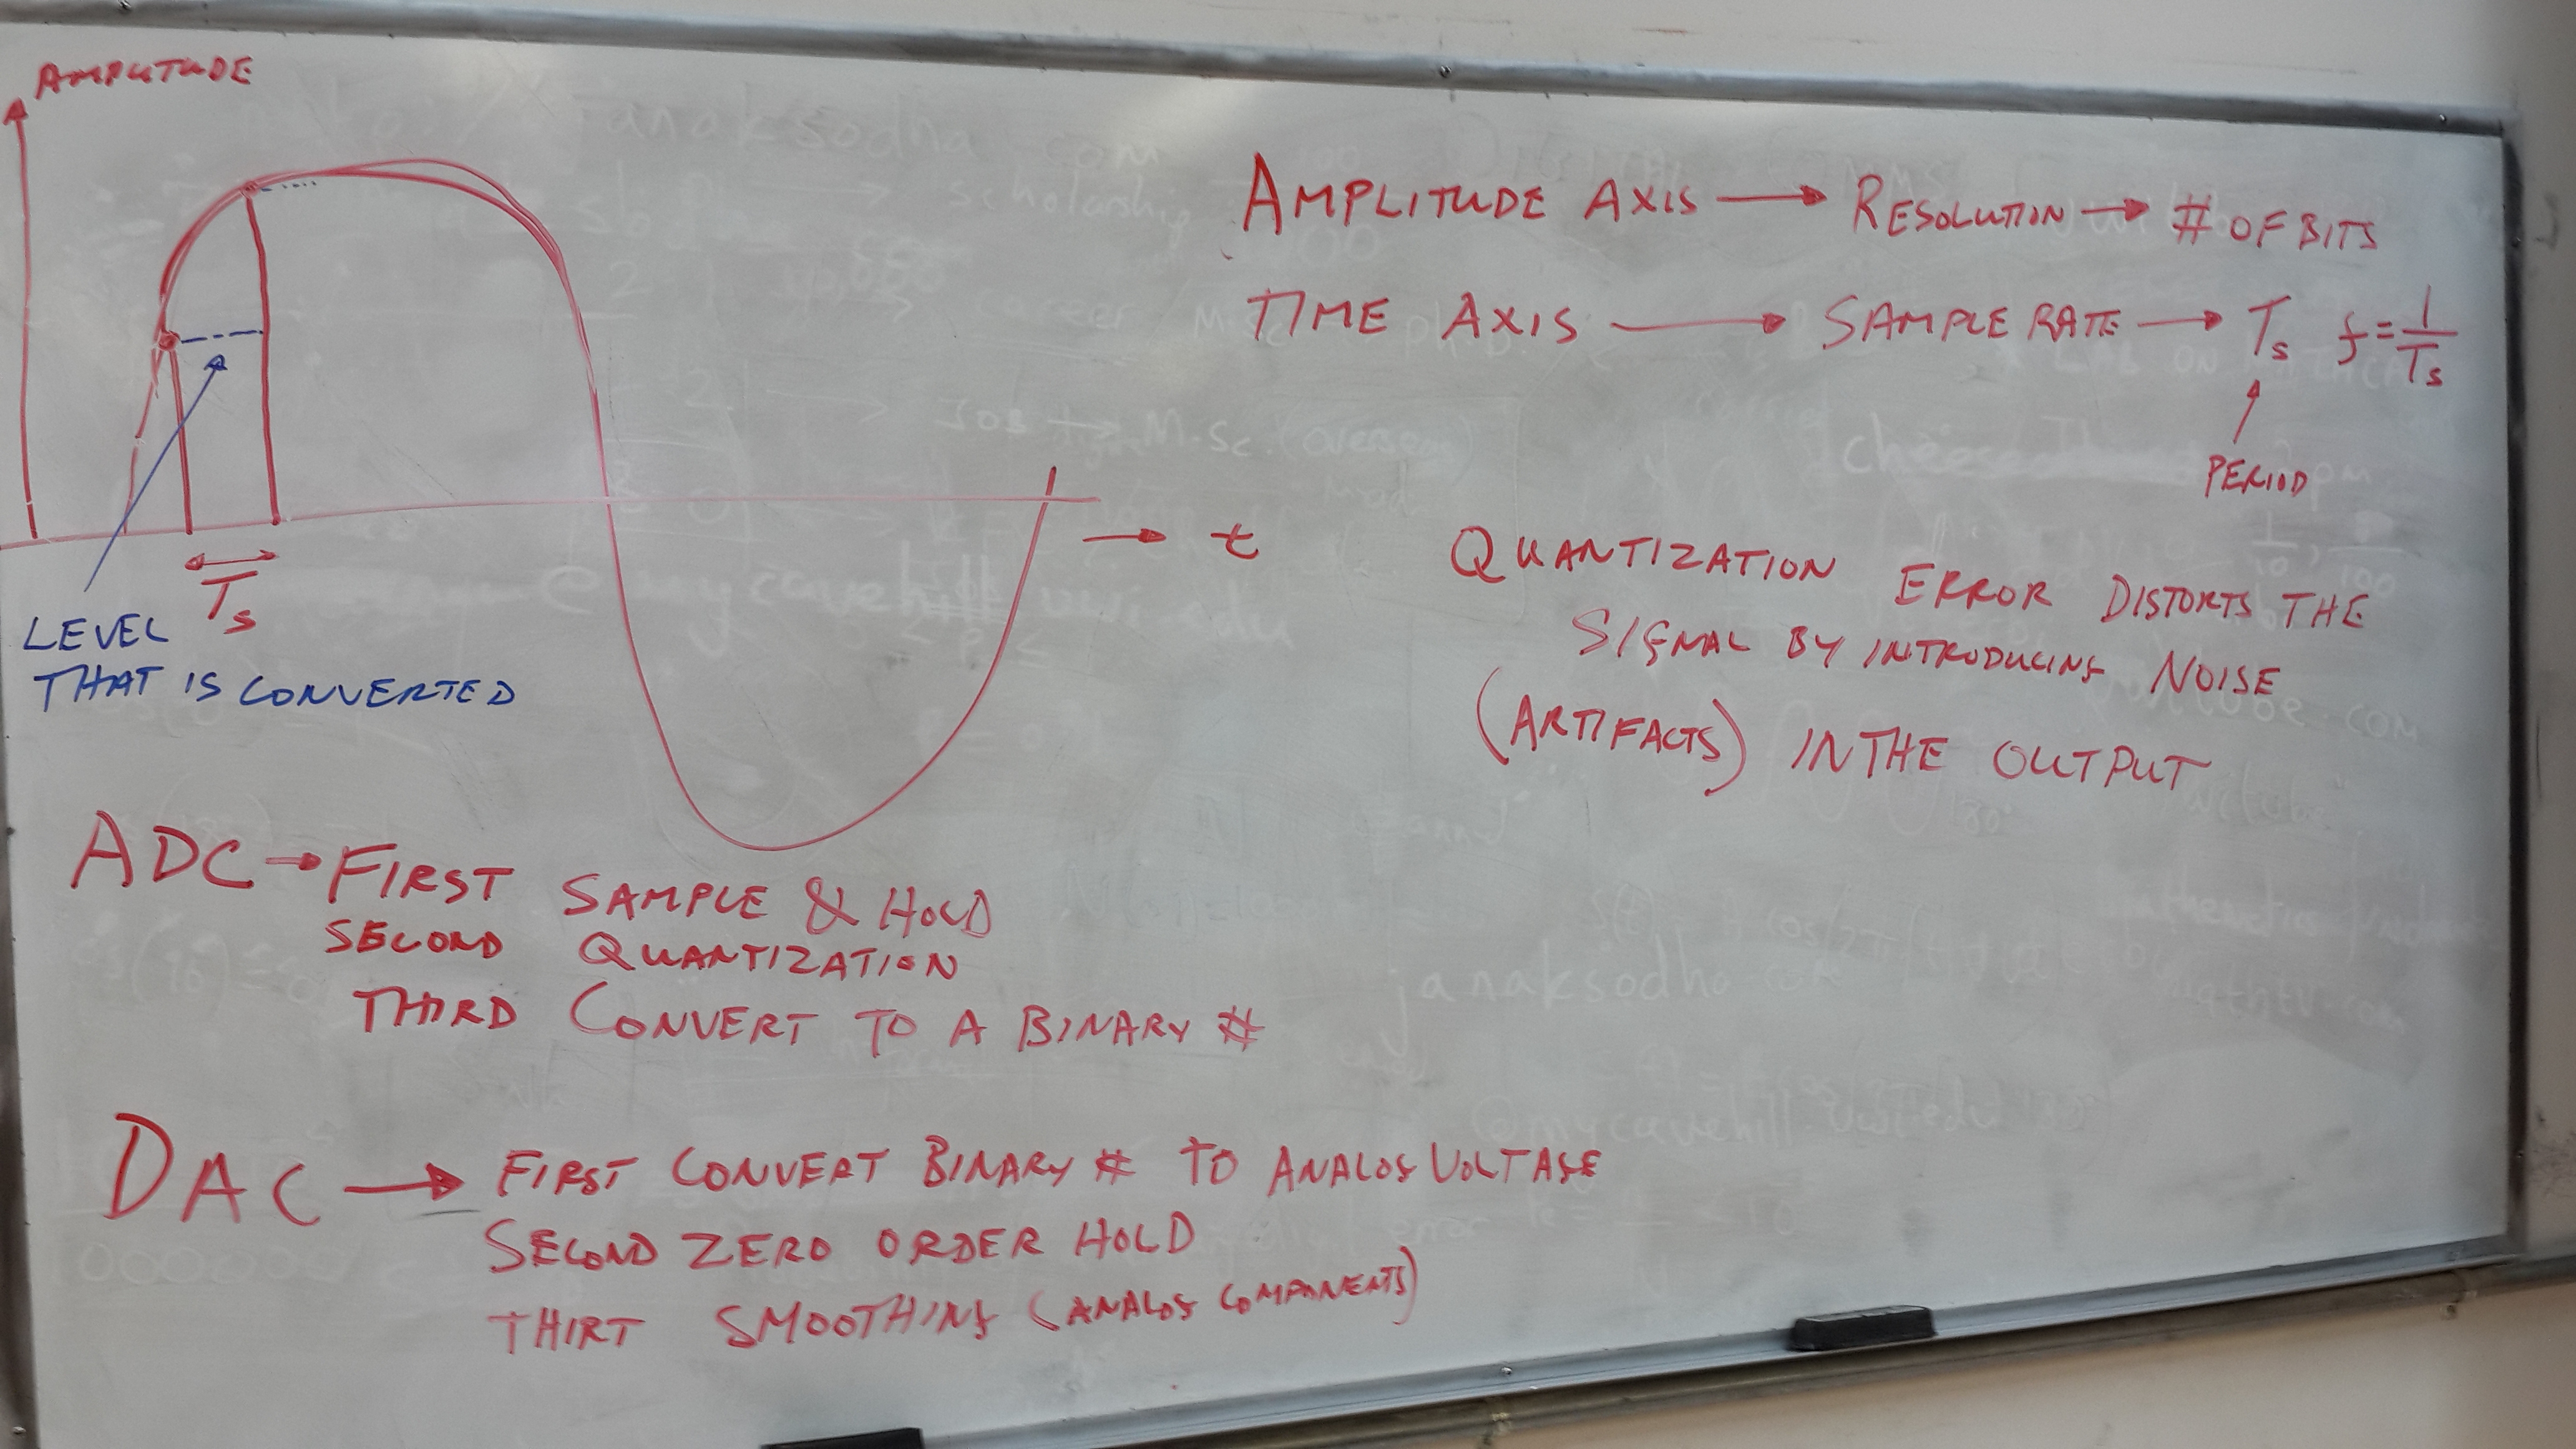 AMPLITUDE
AMPLITUDE AXIS → RESOLUTION → # OF BITS
TIME AXIS → SAMPLE RATE → Ts f = 1/Ts
PERIOD
→ t
Ts
LEVEL
THAT IS CONVERTED
QUANTIZATION ERROR DISTORTS THE
SIGNAL BY INTRODUCING NOISE
(ARTIFACTS) IN THE OUTPUT
ADC → FIRST SAMPLE & HOLD
SECOND QUANTIZATION
THIRD CONVERT TO A BINARY #
DAC → FIRST CONVERT BINARY # TO ANALOG VOLTAGE
SECOND ZERO ORDER HOLD
THIRT SMOOTHING (ANALOG COMPONENTS)
janaksodha.com